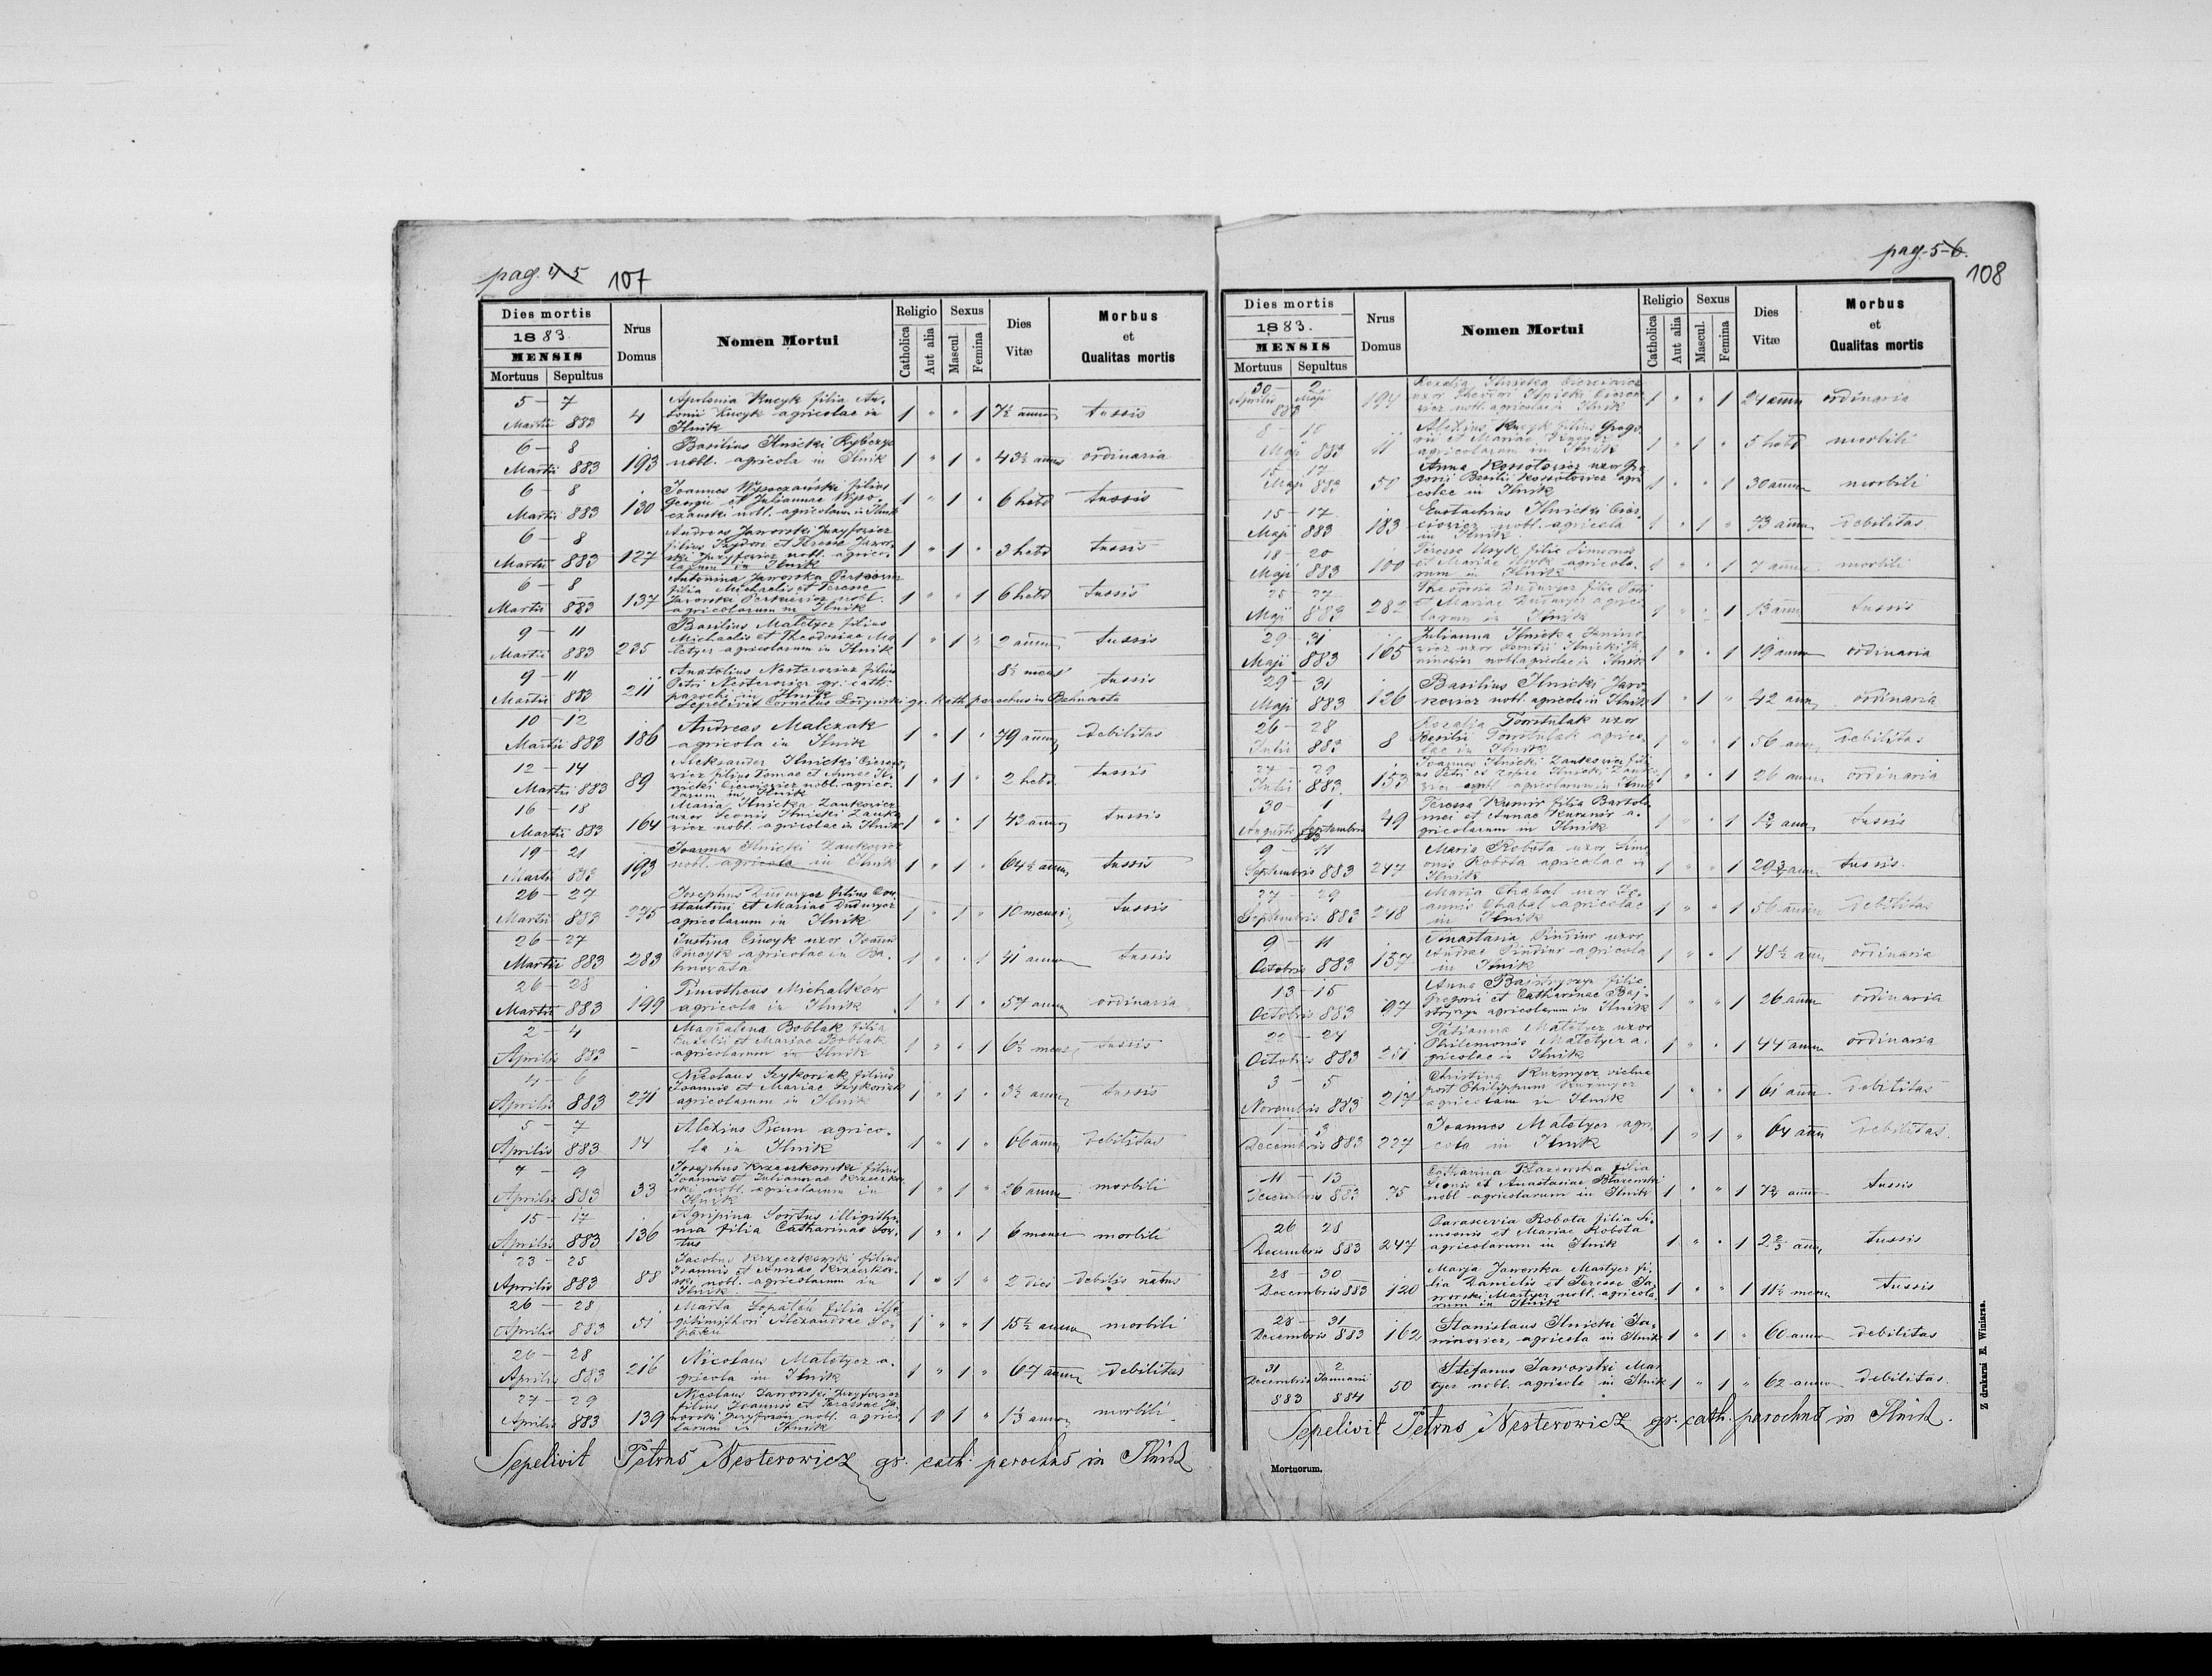 pag. 4 5 107
Dies mortis
1883.
MENSIS
Mortuus Sepultus
Nrus Domus
Nomen Mortui
Religio
Catholica Aut alia
Sexus
Mascul. Femina
Dies Vitæ
Morbus et Qualitas mortis
5 — 7 Martii 883 4 Apolonia Kucyk filia An-
tonii Kucyk agricolae in 1 " " 1 7½ annor tussis
Ilnik
6 — 8 Basilius Ilnicki Rybczyc
Martii 883 193 nobl. agricola in Ilnik 1 " 1 " 43½ annor ordinaria
6 — 8 Joannes Wysoczański filius
Georgii et Juliannae Wyso-
Martii 883 130 czanski nobl. agricolarum in Ilnik 1 " 1 " 6 hebd tussis
6 — 8 Andreas Jaworski
filius et Teresse Jawor-
Martii 883 127 ski nobl. agrico- 1 " 1 " 3 hebd tussis
larum in Ilnik
6 — 8 Antonina Jaworska
filia Michaelis et Teresse
Martii 883 137 Jaworski nobl. 1 " " 1 6 hebd tussis
agricolarum in Ilnik
9 — 11 Basilius Maletycz filius
Michaelis et Theodosiae Ma-
Martii 883 235 letycz agricolarum in Ilnik 1 " 1 " 2 annor tussis
9 — 11 Anatolius Nesterowicz filius 8½ mens
Petri Nesterowicz gr. cath.
Martii 883 211 parochi in Ilnik tussis
Sepelivit Cornelius gr. kath parochus in
10 — 12 Andreas Malczak
Martii 883 186 agricola in Ilnik 1 " 1 " 79 annor debilitas
12 — 14 Aleksander Ilnicki
filius Tomae et Annae Il-
Martii 883 89 nicki nobl. agrico- 1 " 1 " 2 hebd tussis
larum in Ilnik
16 — 18 Maria Ilnicka Zankowicz
uxor Leonis Ilnicki Zanko-
Martii 883 164 wicz nobl. agricolae in Ilnik 1 " " 1 43 annor tussis
19 — 21 Joannes Ilnicki Zankowicz
Martii 883 193 nobl. agricola in Ilnik 1 " 1 " 64½ annor tussis
26 — 27 Josephus filius Con-
stantini et Mariae
Martii 883 275 agricolarum in Ilnik 1 " 1 " 10 mensi tussis
26 — 27 Justina uxor Joannis
Martii 883 283 agricolae in Ba- 1 " " 1 41 annor tussis
hnowata
26 — 28 Timotheus Michalków
Martii 883 199 agricola in Ilnik 1 " 1 " 57 annor ordinaria
2 — 4 Magdalena Boblak filia
et Mariae Boblak
Aprilis 883 — agricolarum in Ilnik 1 " " 1 6½ mens tussis
4 — 6 Nicolaus Szykoriak filius
Joannis et Mariae Szykoriak
Aprilis 883 271 agricolarum in Ilnik 1 " 1 " 3½ annor tussis
5 — 7 Alexius Picun agrico-
Aprilis 883 14 la in Ilnik 1 " 1 " 66 annor debilitas
7 — 9 Josephus Krzeczkowski filius
Joannis et Juliannae
Aprilis 883 33 nobl. agricolarum in 1 " 1 " 26 annor morbili
Ilnik
15 — 17 Agripina Sortus illigithi-
Aprilis 883 136 ma filia Catharinae Sor- 1 " " 1 6 mens morbili
tus
23 — 25 Jacobus Krzeczkowski filius
Joannis et Annae Krzeczkow-
Aprilis 883 88 ski nobl. agricolarum in 1 " 1 " 2 dies debilis natus
Ilnik
26 — 28 Marta filia
Aprilis 883 51 Alexandrae 1 " " 1 15½ annor morbili
26 — 28 Nicolaus Maletycz a-
Aprilis 883 216 gricola in Ilnik 1 " 1 " 67 annor debilitas
27 — 29 Nicolaus Jaworski
filius Joannis et Ja-
Aprilis 883 139 worski nobl. agrico- 1 " 1 " 1⅓ annor morbili
larum in Ilnik
Sepelivit Petrus Nesterowicz gr. cath. parochus in Ilnik
pag. 5-6.
108
Dies mortis
1883.
MENSIS
Mortuus Sepultus
Nrus Domus
Nomen Mortui
Religio
Catholica Aut alia
Sexus
Mascul. Femina
Dies Vitæ
Morbus et Qualitas mortis
30 — 2 Rozalia Ilnicka
Aprilis Maji 194 uxor Ilnicki 1 " " 1 24 annor ordinaria
883 nobl. agricolae in Ilnik
8 — 15 Alexius Kucyk filius Grego-
rii et Mariae Kucyk
Maji 883 11 agricolarum in Ilnik 1 " 1 " 5 hebd morbili
15 — 17 Anna Kossotowicz uxor Gre-
Maji 883 50 gorii Basilii Kossotowicz agri- 1 " " 1 30 annor morbili
colae in Ilnik
15 — 17 Eustachius Ilnicki
Maji 883 183 nobl. agricola 1 " 1 " 73 annor debilitas
in Ilnik
18 — 20 Teressa Usyk filia Simeonis
Maji 883 100 et Mariae Usyk agricola- 1 " " 1 7 annor morbili
rum in Ilnik
25 — 27 Theodosia filia Petri
Maji 883 282 et Mariae agrico- 1 " " 1 13 annor tussis
larum in Ilnik
29 — 31 Julianna Ilnicka Janino-
wicz uxor Ilnicki Ja-
Maji 883 165 ninowicz nobl agricolae in Ilnik 1 " " 1 19 annor ordinaria
29 — 31 Basilius Ilnicki
Maji 883 126 nobl. agricola in Ilnik 1 " 1 " 42 ann ordinaria
26 — 28 Rozalja uxor
Julii 883 8 Basilii agrico- 1 " " 1 56 ann debilitas
lae in Ilnik
27 — 29 Joannes Ilnicki Zankowicz fili-
us Petri et Ilnicki Zanko-
Julii 883 153 wicz nobl. agricolarum in Ilnik 1 " " 1 26 annor ordinaria
30 — 1 Teressa filia Bartolo-
mei et Annae a-
Augusti Septembris 883 49 gricolarum in Ilnik 1 " " 1 1¾ ann tussis
9 — 11 Maria Robota uxor Sime-
Septembris 883 247 onis Robota agricolae in 1 " " 1 29¾ ann tussis
Ilnik
27 — 29 Maria Chabal uxor Jo-
Septembris 883 248 annis Chabal agricolae 1 " " 1 56 annor debilitas
in Ilnik
9 — 11 Anastasia uxor
Octobris 883 157 Andreae agricola 1 " " 1 48½ ann ordinaria
in Ilnik
13 — 15 Anna filia
Gregorii et Catharinae
Octobris 883 97 agricolarum in Ilnik 1 " " 1 26 annor ordinaria
22 — 24 Tatianna Maletycz uxor
Philemonis Maletycz a-
Octobris 883 251 gricolae in Ilnik 1 " " 1 44 annor ordinaria
3 — 5 Christina Kuzmycz vidua
post Philippum Kuzmycz
Novembris 883 217 agricolam in Ilnik 1 " " 1 61 ann debilitas
1 — 3 Joannes Maletycz agri-
Decembris 883 227 cola in Ilnik 1 " 1 " 64 ann debilitas.
11 — 13 Catharina Błazewska filia
Leonis et Anastasiae Błazewski
Decembris 883 75 nobl agricolarum in Ilnik 1 " " 1 7¾ annor tussis
26 28 Parascevia Robota filia Si-
meonis et Mariae Robota
Decembris 883 247 agricolarum in Ilnik 1 " " 1 2⅔ ann tussis
28 — 30 Marja Jaworska Martycz fi-
lia Danielis et Teresse Ja-
Decembris 883 120 worski Martycz nobl. agricola- 1 " " 1 11½ mens tussis
rum in Ilnik
28 — 31 Stanislaus Ilnicki Ja-
Decembris 883 162 ninowicz, agricola in Ilnik 1 " 1 " 60 annor debilitas
31 2 Stefanus Jaworski Mar-
Decembris Januarii tycz nobl. agricola in Ilnik 1 " 1 " 62 annor debilitas.
883 884 50
Sepelivit Petrus Nesterowicz gr. cath. parochus in Ilnik.
Mortuorum.
Z drukarni E. Winiarza.